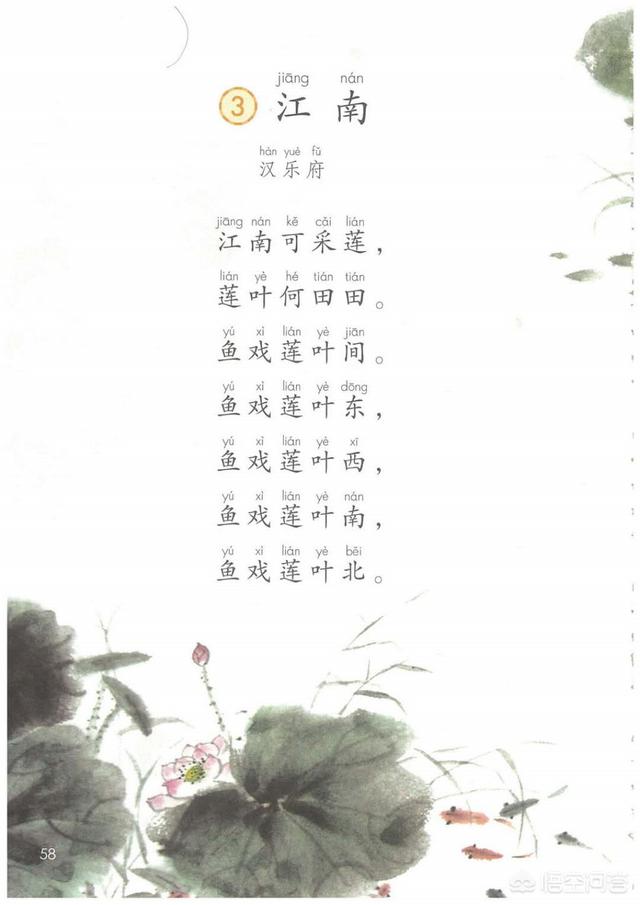 jiāng nán
3 江南
hàn yuè fǔ
汉乐府
jiāng nán kě cǎi lián
江南可采莲，
lián yè hé tián tián
莲叶何田田。
yú xì lián yè jiān
鱼戏莲叶间。
yú xì lián yè dōng
鱼戏莲叶东，
yú xì lián yè xī
鱼戏莲叶西，
yú xì lián yè nán
鱼戏莲叶南，
yú xì lián yè běi
鱼戏莲叶北。
58
悟空问答